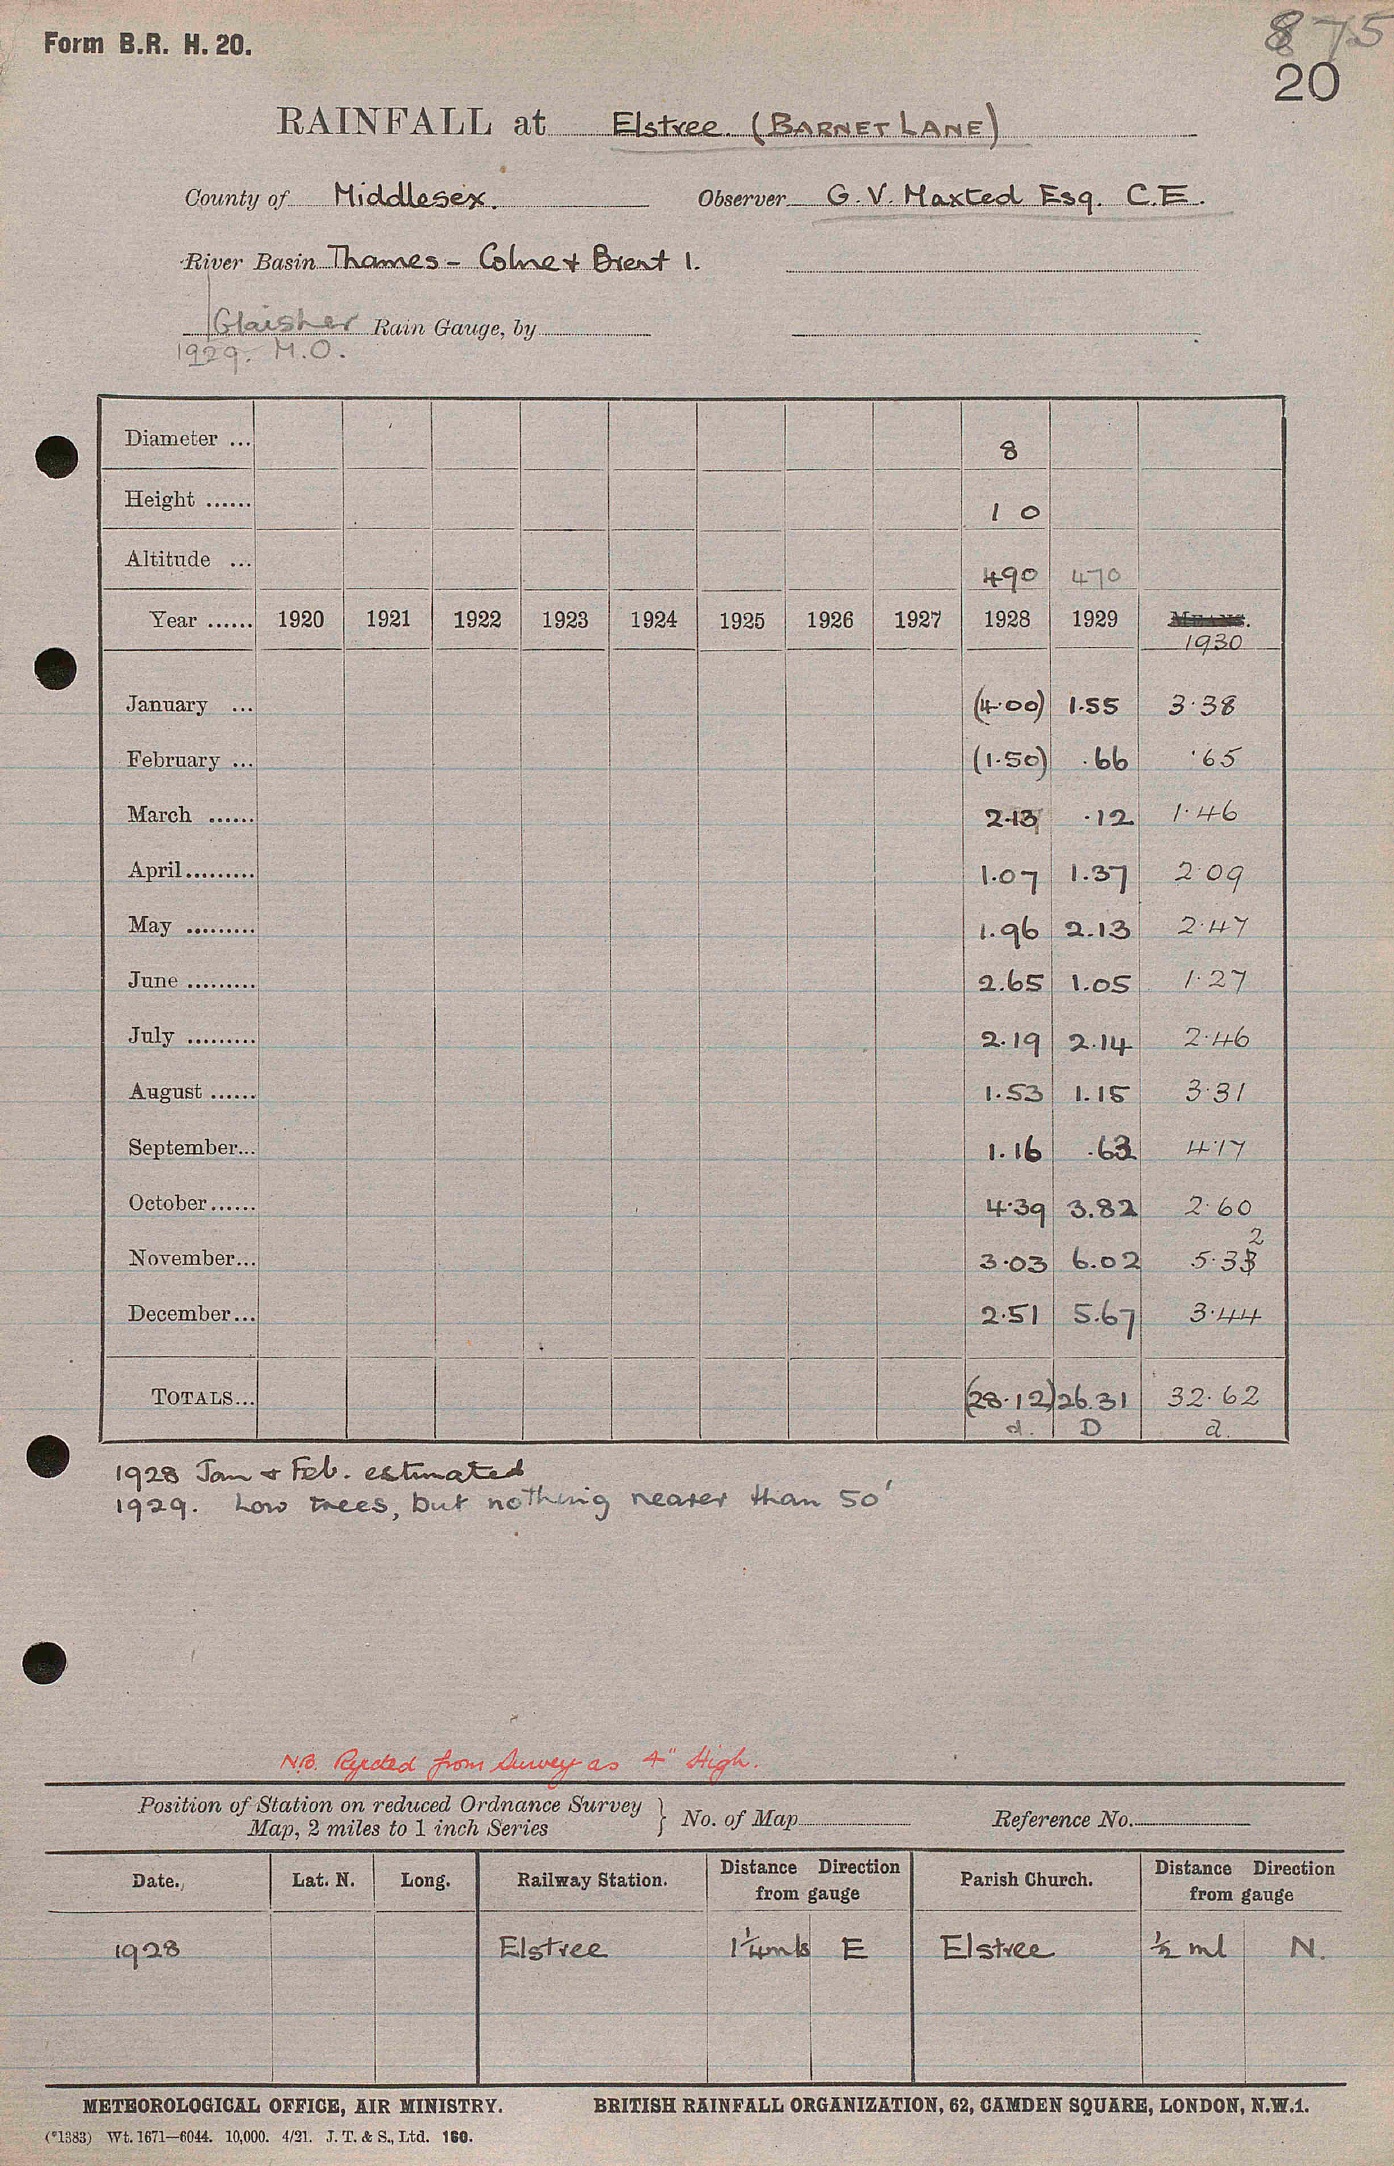 875
Form B.R. H. 20.
20
RAINFALL at Elstree. (BARNET LANE)
County of Middlesex. Observer G. V. Maxted Esq. C.E.
River Basin Thames - Colne + Brent 1.
Glaisher Rain Gauge, by
1929. M.O.
Diameter ... 8
Height ...... 1 0
Altitude ... 490 470
Year ...... 1920 1921 1922 1923 1924 1925 1926 1927 1928 1929 MEANS.
1930
January ... (4.00) 1.55 3.38
February ... (1.50) .66 .65
March ...... 2.13 .12 1.46
April ......... 1.07 1.37 2.09
May ......... 1.96 2.13 2.47
June ......... 2.65 1.05 1.27
July ......... 2.19 2.14 2.46
August ...... 1.53 1.15 3.31
September... 1.16 .63 4.17
October...... 4.39 3.82 2.60
November... 3.03 6.02 5.33 2
December... 2.51 5.67 3.44
TOTALS... (28.12) 26.31 32.62
d. D d.
1928 Jan + Feb. estimated
1929. Low trees, but nothing nearer than 50'
N.B. Rejected from Survey as 4" High.
Position of Station on reduced Ordnance Survey
Map, 2 miles to 1 inch Series } No. of Map Reference No.
Date. Lat. N. Long. Railway Station. Distance Direction from gauge Parish Church. Distance Direction from gauge
1928 Elstree 1¼mls E Elstree ½ ml N.
METEOROLOGICAL OFFICE, AIR MINISTRY. BRITISH RAINFALL ORGANIZATION, 62, CAMDEN SQUARE, LONDON, N.W.1.
(*1383) Wt. 1671—6044. 10,000. 4/21. J. T. & S., Ltd. 160.